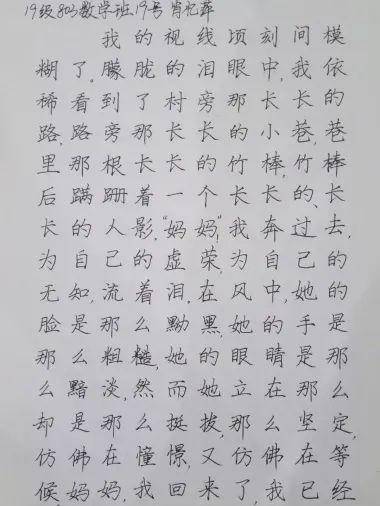 19级803数学班19号 肖忆萍
我的视线顷刻间模
糊了,朦胧的泪眼中,我依
稀看到了村旁那长长的
路,路旁那长长的小巷,巷
里那根长长的竹棒,竹棒
后蹒跚着一个长长的、长
长的人影,“妈妈”,我奔过去,
为自己的虚荣,为自己的
无知,流着泪,在风中,她的
脸是那么黝黑,她的手是
那么粗糙,她的眼睛是那
么黯淡,然而她立在那么
却是那么挺拨,那么坚定,
仿佛在憧憬,又仿佛在等
候,妈妈,我回来了,我已经